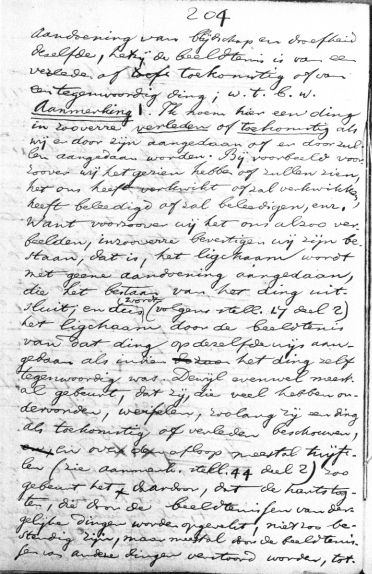 204
aandoening van blijdschap en droefheid
dezelfde, hetzij de beeldtenis is van een
verleden of toekomstig of van
een tegenwoordig ding; w. t. b. w.
Aanmerking 1. Ik noem hier een ding
in zooverre verleden of toekomstig als
wij er door zijn aangedaan of er door zul-
len aangedaan worden. Bij voorbeeld voor
zoover wij het gezien hebben of zullen zien,
het ons heeft verkwikt of zal verkwikken,
heeft beleedigd of zal beleedigen, enz.
Want voorzoover wij het ons alzoo ver-
beelden, inzooverre bevestigen wij zijn be-
staan, dat is, het ligchaam wordt
met geene aandoening aangedaan,
die het bestaan van het ding uit-
sluit; en dus wordt (volgens stell. 17 deel 2)
het ligchaam door de beeldtenis
van dat ding op dezelfde wijs aan-
gedaan als indien het ding zelf
tegenwoordig was. Dewijl evenwel meest-
al gebeurt, dat zij, die veel hebben on-
dervonden, weifelen, zoolang zij een ding
als toekomstig of verleden beschouwen,
en over afloop meestal twijfe-
len (zie aanmerk. stell. 44 deel 2) zoo
gebeurt het daardoor, dat de hartstog-
ten, die door de beeldtenissen van der-
gelijke dingen worden opgewekt, niet zoo be-
stendig zijn, maar meestal door de beeldtenis-
sen van andere dingen verstoord worden, tot-